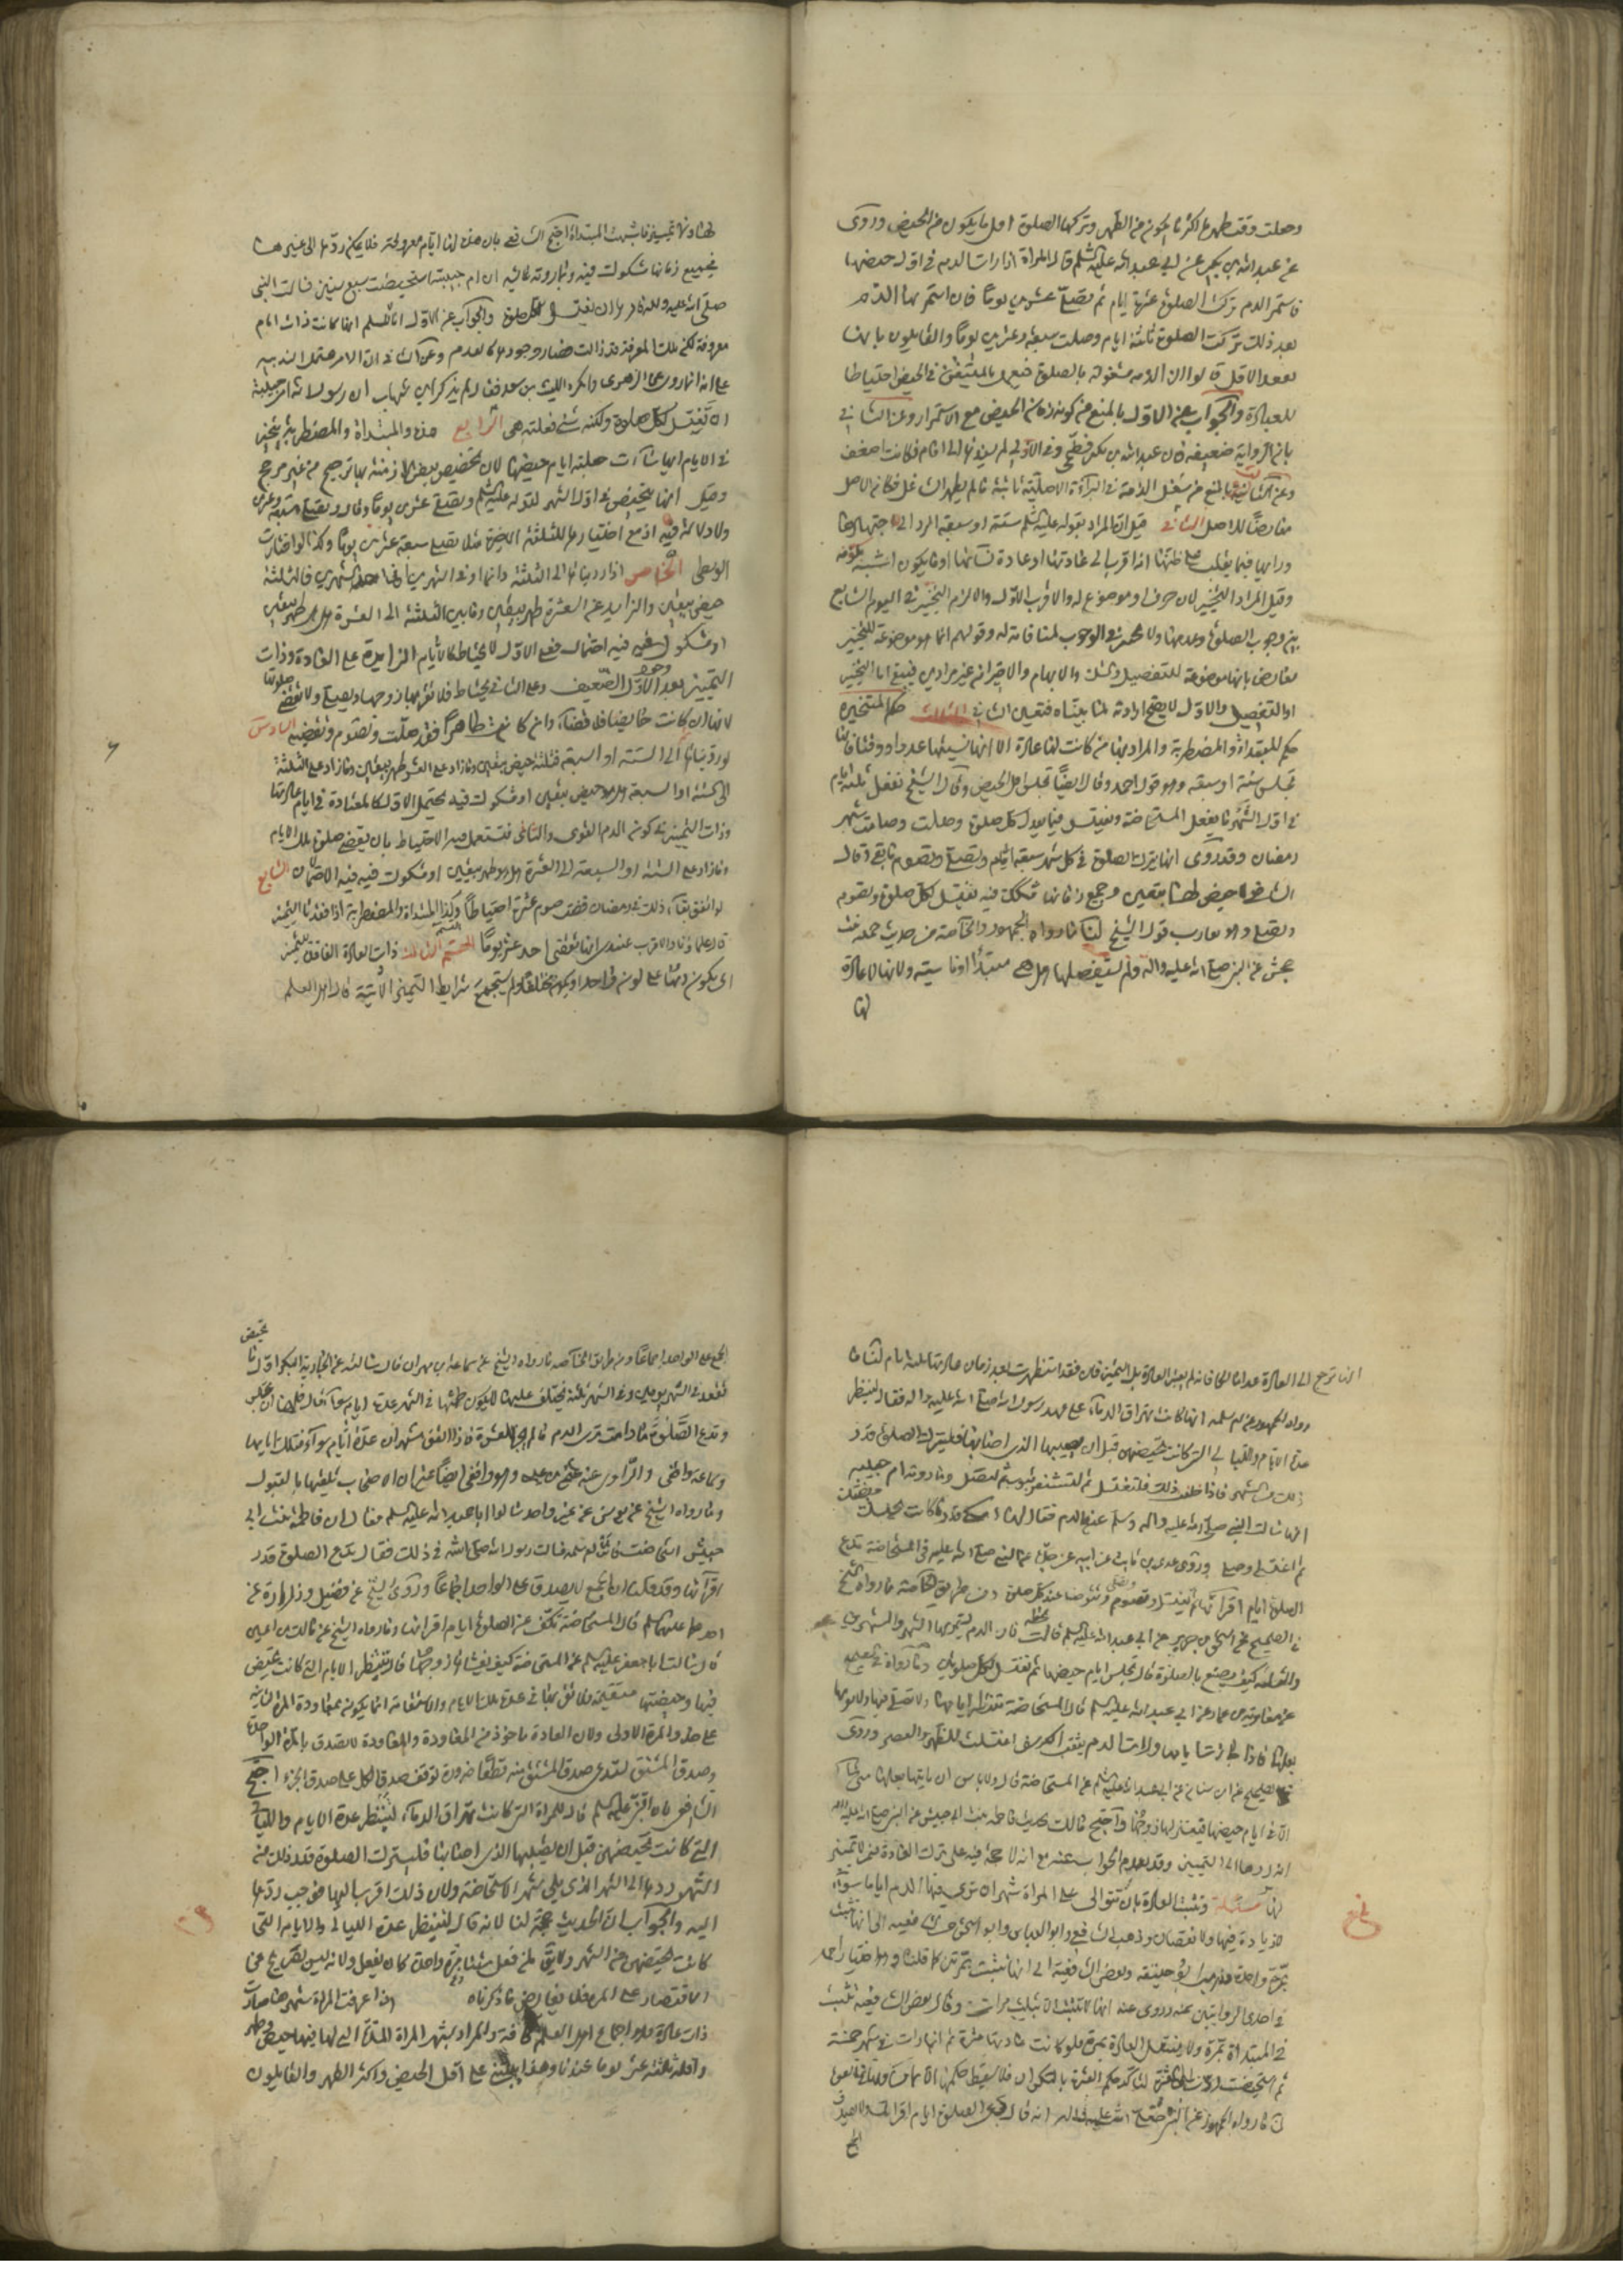 وصلت وقت طهرها اكثر ما يكون من الطهر وتركها الصلوة اقل ما يكون من الحيض وروى
عن عبد الله بن بكير عن ابي عبد الله عليه السلم قال المراة اذا رات الدم في اول حيضها
فاستمر الدم تركت الصلوة عشرة ايام ثم تصلي عشرين يوما فان استمر بها الدم
بعد ذلك تركت الصلوة ثلثة ايام وصلت سبعة وعشرين يوما والقايلون بانها
تقعد الاقل قالوا ان الذمة مشغولة بالصلوة فنعمل بالمتيقن في الحيض احتياطا
للعبادة والجواب عن الاول بالمنع من كونه زمان الحيض مع الاستمرار وعن الثاني
بان الرواية ضعيفة فان عبد الله بن بكير فطحي وفي الاولى لم يسندها الى امام فكانت اضعف
وعن الثالث بالمنع من شغل الذمة فان البراءة الاصلية ثابتة ما لم يظهر الشاغل فكانه الاصل
معارضا للاصل الثاني قيل ان المراد بقوله عليه السلم ستة او سبعة الرد الى اجتهادها
ورايها فيما يغلب على ظنها انه اقرب الى عادتها او عادة نسائها او ما يكون اشبه بلونه
وقيل المراد التخيير لان حرف او موضوع له والاقرب الاول والا لزم التخيير في اليوم السابع
بين وجوب الصلوة وعدمها ولا تخيير في الوجوب لمنافاته له وقولهم انما هو موضوعة للتخيير
معارض بانها موضوعة للتفصيل والشك والابهام والاخيران غير مرادين فيبقى اما التخيير
او التفصيل والاول لا يصح ارادته لما بيناه فتعين الثاني الثالث حكم المتحيرة
حكم المبتداة والمضطربة والمراد بها من كانت لها عادة الا انها نسيتها عددا ووقتا فانها
تجلس ستة او سبعة وهو قول احمد وقال ايضا تجلس اقل الحيض وقال الشيخ تفعل ثلثة ايام
في اول الشهر ما تفعل المستحاضة وتغتسل فيما بعد لكل صلوة وصلت وصامت شهر
رمضان وقد روى انها تترك الصلوة في كل شهر سبعة ايام وتصلي وتصوم ما بقي وقال
الشافعي لا حيض لها بيقين وجميع زمانها مشكوك فيه تغتسل لكل صلوة وتصوم
وتصلي وهو يقارب قول الشيخ لنا ما رواه الجمهور والخاصة من حديث حمنة بنت
جحش عن النبي صلى الله عليه واله ولم يستفصلها هل هي مبتداة او ناسية ولانها لا عادة
لها
لها ولا تمييز فاشبهت المبتداة احتج الشافعي بان هذه لها ايام معروفة فلا يمكن ردها الى غيرها
فجميع زمانها مشكوك فيه وبما روته عايشة ان ام حبيبة استحيضت سبع سنين فسالت النبي
صلى الله عليه واله فامرها ان تغتسل لكل صلوة والجواب عن الاول انا نسلم انها كانت ذات ايام
معروفة لكن تلك المعرفة قد زالت فصار وجودها كالعدم وعن الثاني ان الامر محتمل الندبية
على انه انما روى عن الزهري وانكره الليث بن سعد فقال لم يذكر ابن شهاب ان رسول الله امر ام حبيبة
ان تغتسل لكل صلوة ولكنه شئ فعلته هي الرابع هذه والمبتداة والمضطربة يتخير
في الايام ايها شاءت جعلته ايام حيضها لان تخصيص بعض الازمنة بها ترجيح من غير مرجح
وقيل انها تتحيض في اول الشهر لقوله عليه السلم وتصلي عشرين يوما وقال وتصلي سبعة وعشرين
ولا دلالة فيه اذ مع اختيارها للثلثة الاخيرة مثلا تصلي سبعة وعشرين يوما وكذا لو اختارت
الوسطى الخامس اذا رددناها الى الثلثة دائما او في الشهرين فالثلثة
حيض بيقين والزايد عن العشرة طهر بيقين وما بين الثلثة الى العشرة هل هو طهر بيقين
او مشكوك فيه فيه احتمال فعلى الاول لا يحتاط كالايام الزايدة على العادة وذات
التمييز بعد الدم الضعيف وعلى الثاني يحتاط فلا يقربها زوجها وتصلي ولا تقضي صلوتها
لانها ان كانت حائضا فلا قضاء وان كانت طاهرا فقد صلت وتصوم وتقضيه السادس
لو رددناها الى الستة او السبعة فثلثة حيض بيقين وما زاد على العشرة طهر بيقين وما زاد على الثلثة
الى الستة او السبعة هل هو حيض بيقين او مشكوك فيه يحتمل الاول كالمعتادة في ايام عادتها
وذات التمييز في كونه الدم القوى والثاني فتستعمل فيه الاحتياط بان تقضي صلوة تلك الايام
وما زاد على الستة او السبعة الى العشرة هل هو طهر بيقين او مشكوك فيه فيه الاحتمالان السابع
لو اتفق بقاء ذلك في رمضان قضت صوم عشرة احتياطا وكذا المبتداة والمضطربة اذا فقدتا التمييز
قال علماؤنا والاقرب عندي انها تقضي احد عشر يوما القسم الثالث ذات العادة الفاقدة للتمييز
اي يكون دمها على لون واحد او يكون مختلفا ولم يستجمع شرايط التمييز الاتية قال اهل العلم
انها ترجع الى العادة عدا مالكا فانه لم يعتبر العادة بل التمييز فان فقد استظهرت بعد زمان عادتها بثلثة ايام لنا ما
رواه الجمهور عن ام سلمة انها كانت تهراق الدماء على عهد رسول الله صلى الله عليه واله فقال لتنظر
عدة الايام والليالي التي كانت تحيضهن قبل ان يصيبها الذي اصابها فلتترك الصلوة قدر
ذلك من الشهر فاذا خلفت ذلك فلتغتسل ثم لتستثفر بثوب ثم لتصل وما روته ام حبيبة
انها سالت النبي صلى الله عليه واله وسلم عن الدم فقال لها امكثي قدر ما كانت تحبسك حيضتك
ثم اغتسلي وصلي وروى عدي بن ثابت عن ابيه عن جده عن النبي صلى الله عليه في المستحاضة تدع
الصلوة ايام اقرائها ثم تغتسل وتصوم وتصلي وتتوضا عند كل صلوة ومن طريق الخاصة ما رواه الشيخ
في الصحيح عن اسحق بن جرير عن ابي عبد الله عليه السلم قالت فان الدم يستمر بها الشهر والشهرين
والثلثة كيف تصنع بالصلوة قال تجلس ايام حيضها ثم تغتسل لكل صلوتين وما رواه في الصحيح
عن معوية بن عمار عن ابي عبد الله عليه السلم قال المستحاضة تنتظر ايامها ولا تصلي فيها ولا يقربها
بعلها فاذا جازت ايامها ورات الدم يثقب الكرسف اغتسلت للظهر والعصر وروى
في الصحيح عن ابن سنان عن ابي عبد الله عليه السلم عن المستحاضة قال ولا باس ان ياتيها بعلها متى شاء
الا في ايام حيضها فيعتزلها زوجها واحتج مالك بحديث فاطمة بنت ابي حبيش عن النبي صلى الله عليه واله
انه ردها الى التمييز وقد تقدم الجواب عنه مع انه لا حجة فيه على ترك العادة لمن لا تمييز
لها مسئلة وتثبت العادة بان تتوالى على المراة شهران ترى فيها الدم اياما سواء
لا زيادة فيها ولا نقصان وذهب الشافعي وابو العباس وابو اسحق من الشافعية الى انها تثبت
بمرة واحدة وذهب ابو حنيفة وبعض الشافعية الى انها تثبت بمرتين كما قلناه وهو اختيار احمد
في احدى الروايتين عنه وروى عنه انها لا تثبت الا بثلث مرات وقال بعض الشافعية تثبت
في المبتداة بمرة ولا ينتقل العادة بمرة فلو كانت عادتها عشرة ثم انها رات في شهر خمسة
لنا ما رواه الجمهور عن النبي صلى الله عليه واله انه قال دعي الصلوة ايام اقرائك ولا يصدق
الجمع
الجمع على الواحد اجماعا ومن طريق الخاصة ما رواه الشيخ عن سماعة بن مهران قال سالته عن الجارية البكر اول ما تحيض
تقعد في الشهر يومين وفي الشهر ثلثة يختلف عليها لا يكون طمثها في الشهر عدة ايام سواء قال فلها ان تجلس
وتدع الصلوة ما دامت ترى الدم ما لم يجز العشرة فاذا اتفق شهران عدة ايام سواء فتلك ايامها
وسماعة واقفي والراوي عنه عثمن بن عيسى وهو واقفي ايضا غير ان الاصحاب تلقتها بالقبول
وما رواه الشيخ عن يونس عن غير واحد سالوا ابا عبد الله عليه السلم فقال ان فاطمة بنت ابي
حبيش استحاضت فاتت ام سلمة فسالت رسول الله صلى الله في ذلك فقال تدع الصلوة قدر
اقرائها وقد قلنا ان الجمع لا يصدق على الواحد اجماعا وروى الشيخ عن فضيل وزرارة عن
احدهما عليهما السلم قال المستحاضة تكف عن الصلوة ايام اقرائها وما رواه الشيخ عن مالك بن اعين
قال سالت ابا جعفر عليه السلم عن المستحاضة كيف يغشاها زوجها قال ينظر الايام التي كانت تحيض
فيها وحيضتها مستقيمة فلا يقربها في عدة تلك الايام والاستقامة انما يكون بمعاودة المرة الثانية
على حد والمرة الاولى ولان العادة ماخوذ من المعاودة والمعاودة لا تصدق بالمرة الواحدة
وصدق المشتق يستدعي صدق المشتق منه قطعا ضرورة توقف صدق الكل على صدق الجزء احتج
الشافعي بانه عليه السلم قال للمراة التي كانت تهراق الدماء لتنظر عدة الايام والليالي
التي كانت تحيضهن قبل ان يصيبها الذي اصابها فلتترك الصلوة قدر ذلك من
الشهر ردها الى الشهر الذي يلي شهر الاستحاضة ولان ذلك اقرب اليها فوجب ردها
اليه والجواب ان الحديث حجة لنا لانه قال لتنظر عدة الليالي والايام التي
كانت تحيضهن من الشهر ولا يقال لمن فعل شيئا مرة واحدة كان يفعل ولانه ليس بصريح في
الاقتصار على المرة فلا يعارض ما ذكرناه اذا عرفت المراة شهرها صارت
ذات عادة وهو اجماع اهل العلم كافة والمراد بشهر المراة المدة التي لها فيها حيض وطهر
واقله ثلثة عشر يوما عندنا وهذا يبتنى على اقل الحيض واكثر الطهر والقايلون